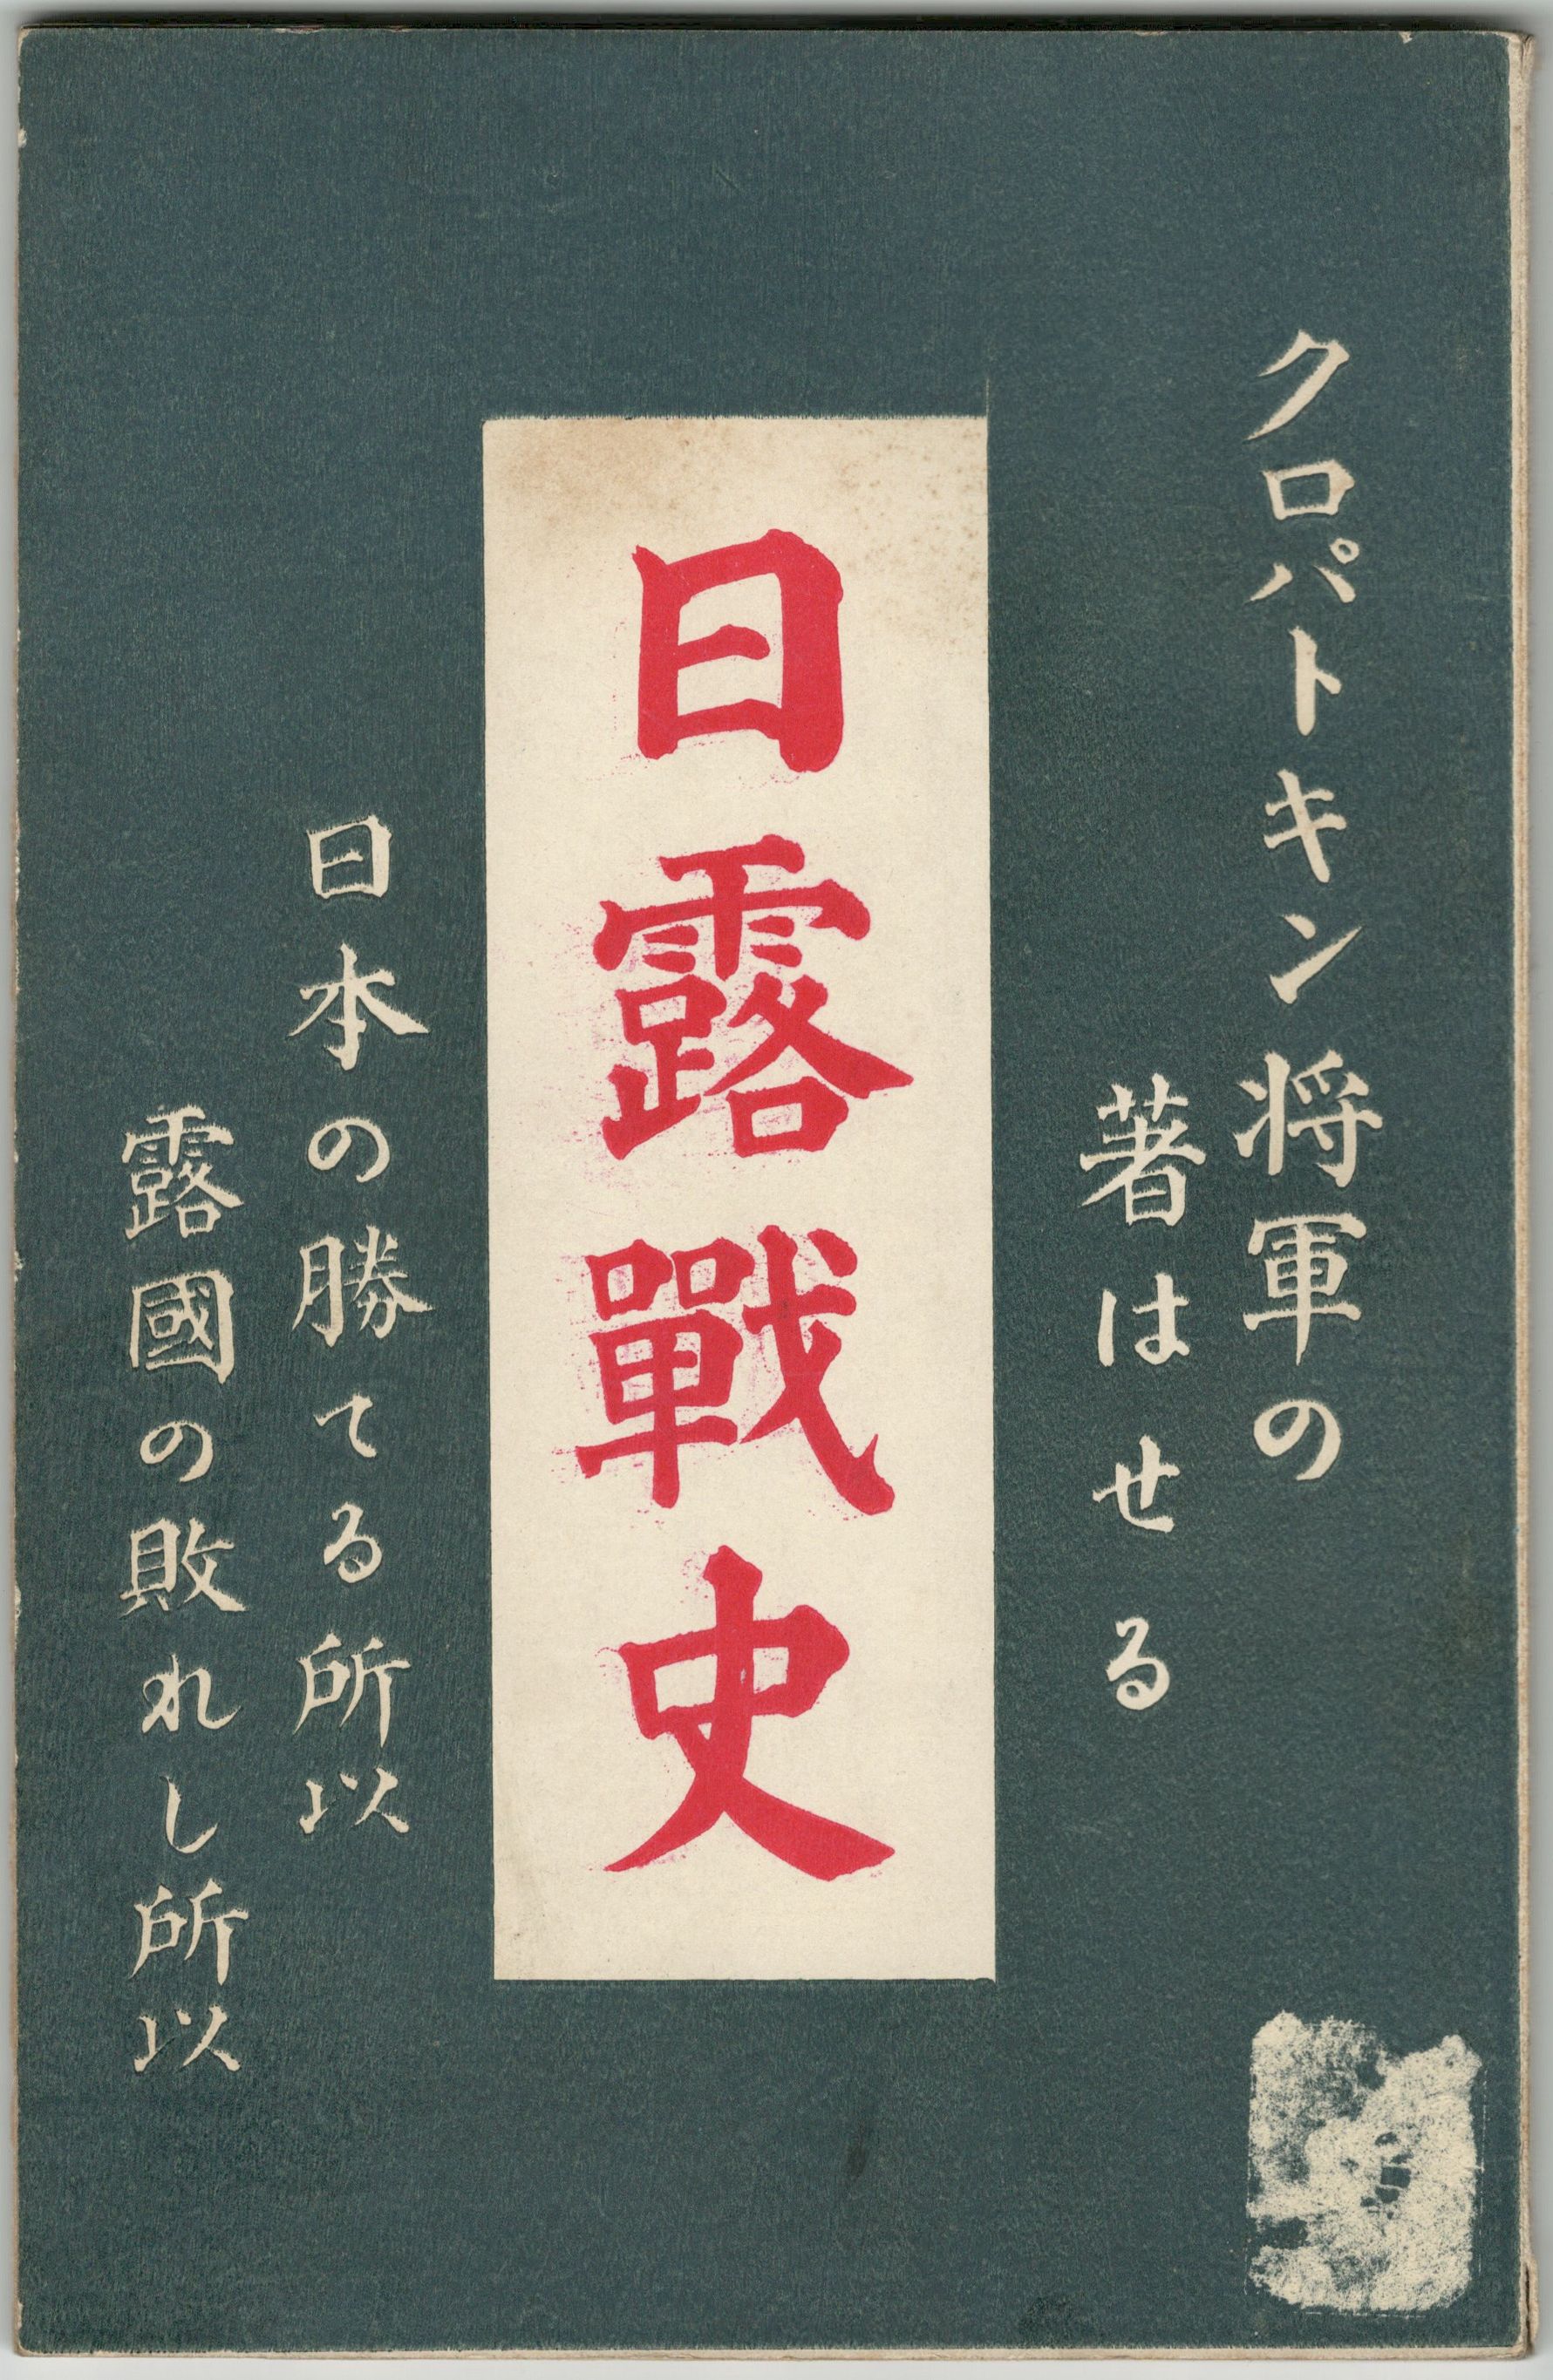 クロパトキン将軍の
著はせる
日露戰史
日本の勝てる所以
露國の敗れし所以